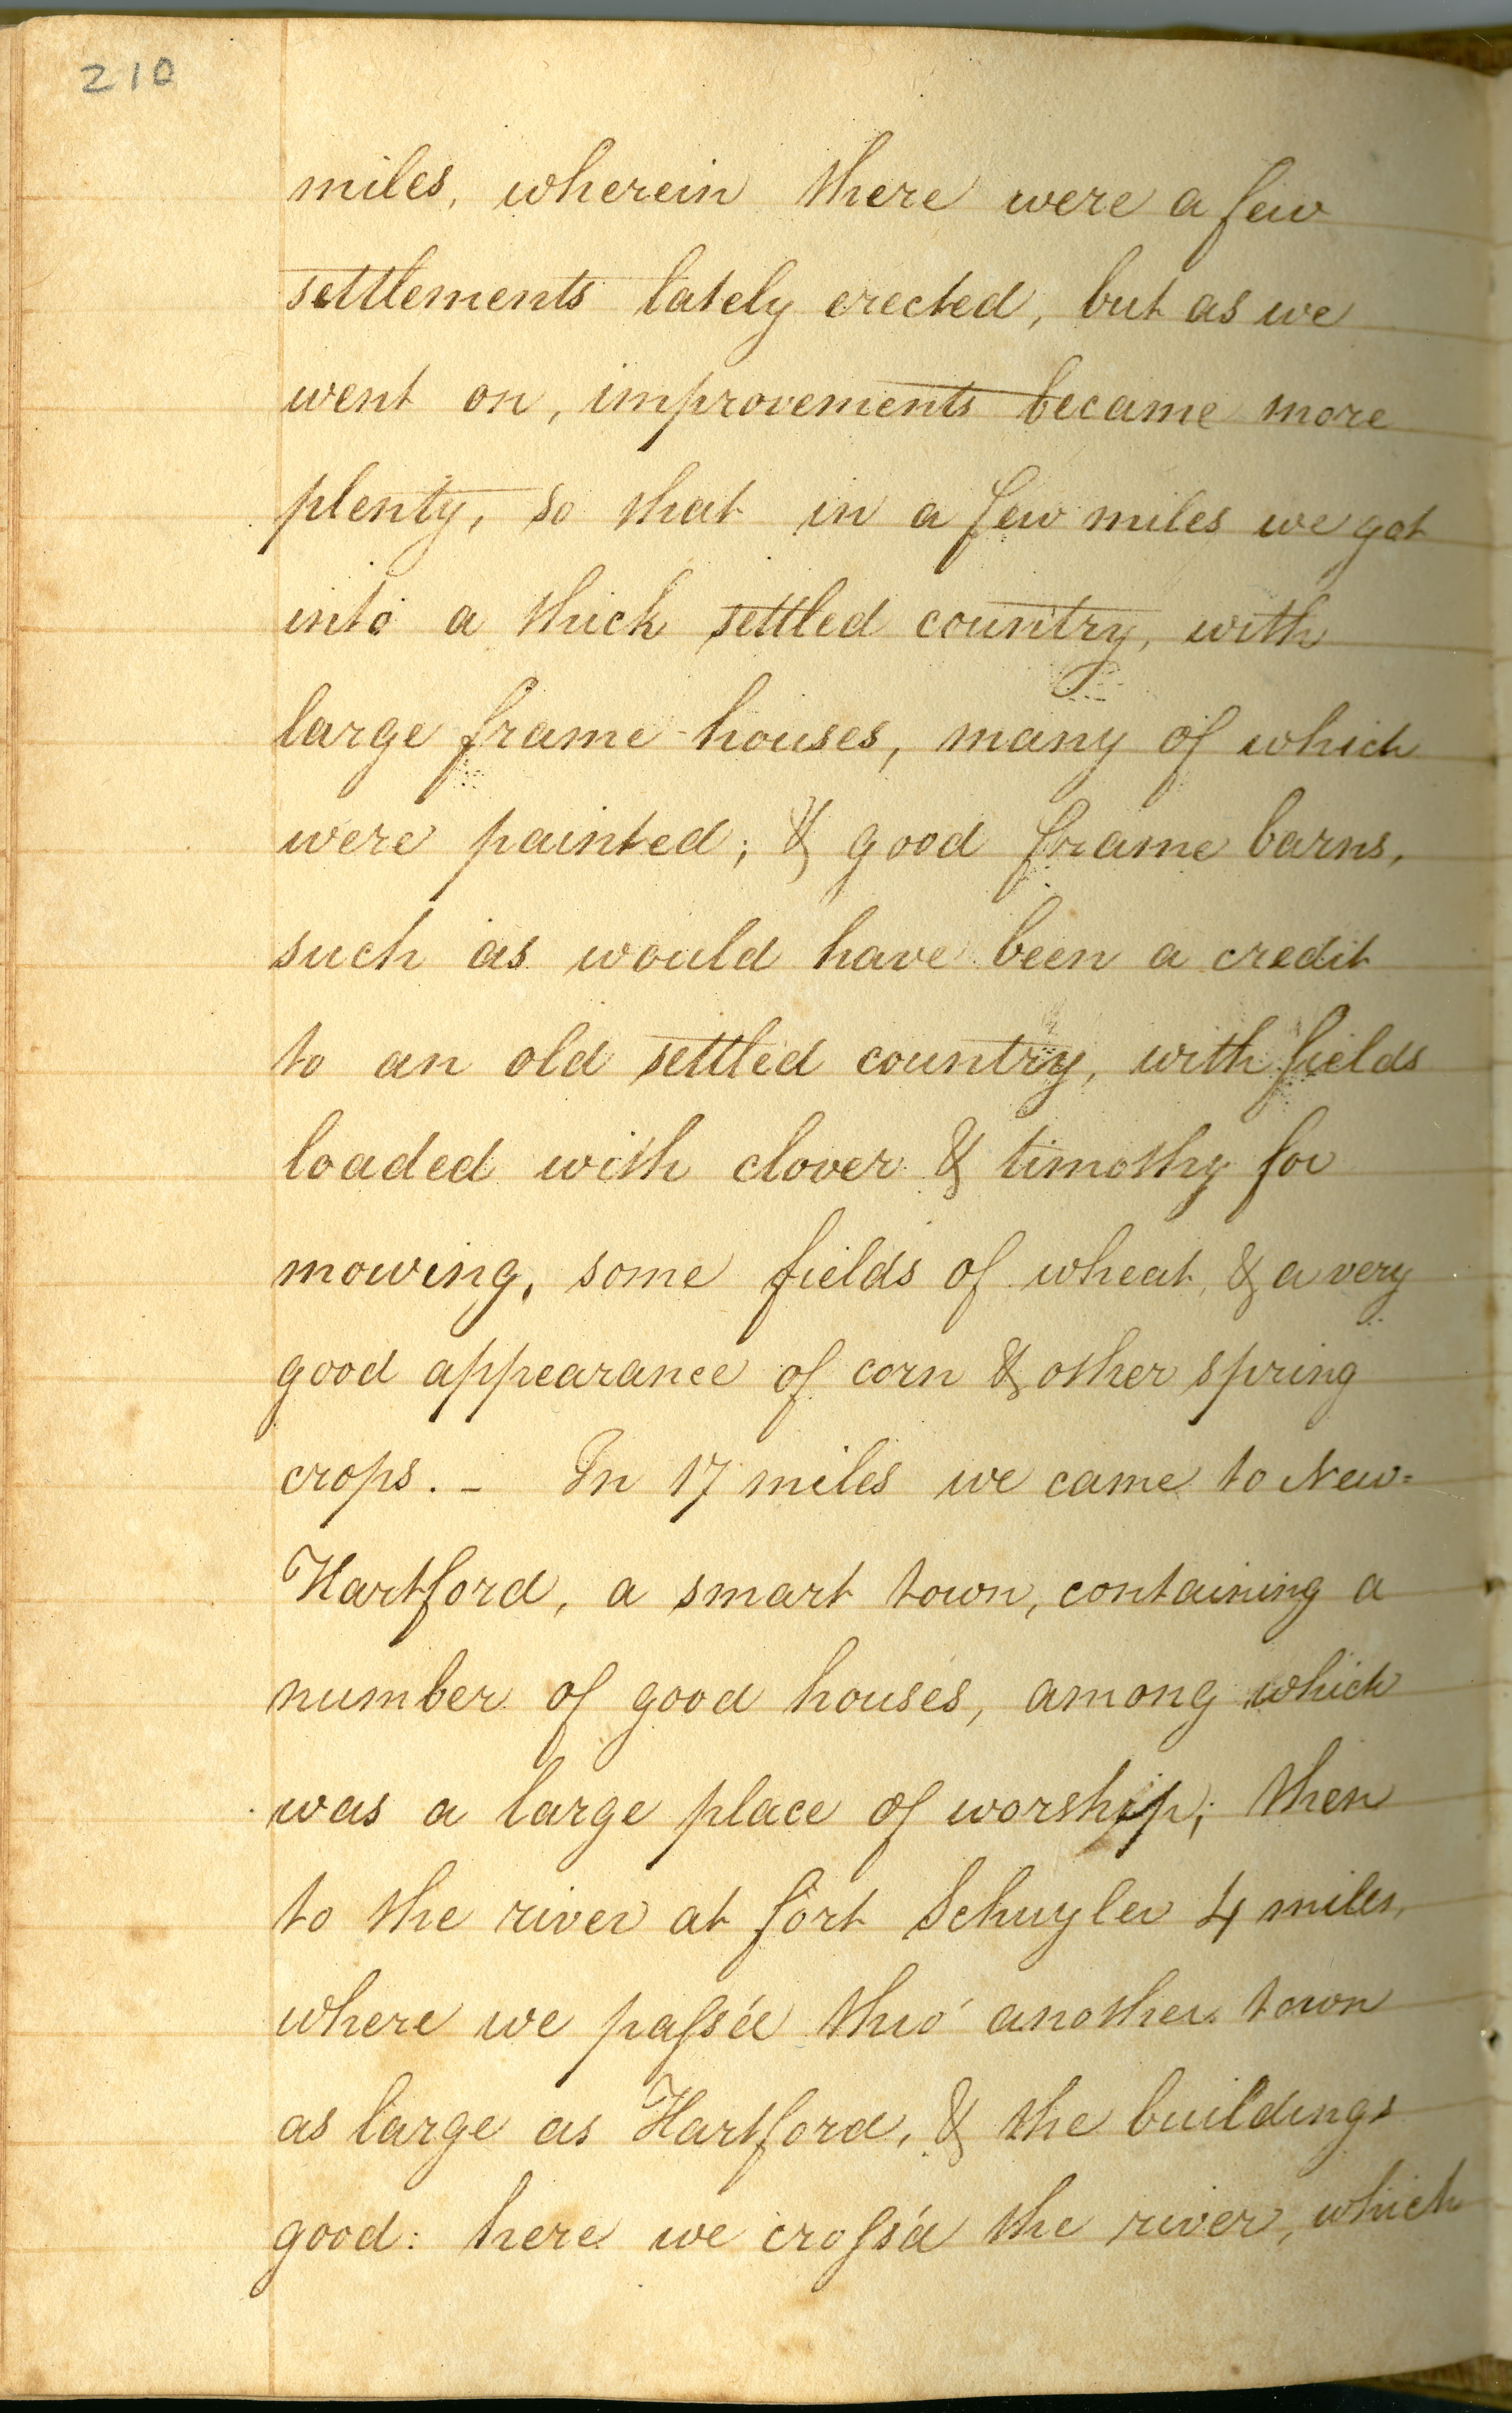 210
miles, wherein there were a few
settlements lately erected, but as we
went on, improvements became more
plenty, so that in a few miles we got
into a thick settled country, with
large frame-houses, many of which
were painted; & good frame barns,
such as would have been a credit
to an old settled country, with fields
loaded with clover & timothy for
mowing, some fields of wheat, & a very
good appearance of corn & other spring
crops. - In 17 miles we came to New=
Hartford, a smart town, containing a
number of good houses, among which
was a large place of worship; then
to the river at fort Schuyler 4 miles,
where we paſs'd thro' another town
as large as Hartford, & the buildings
good: here we croſs'd the river, which